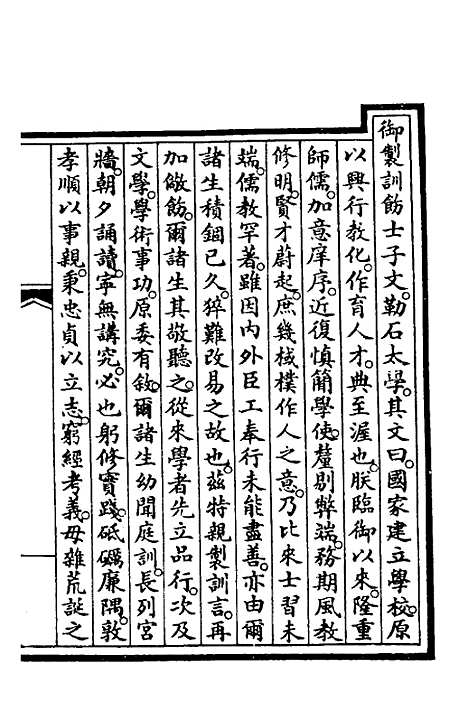 御製訓飭士子文。勒石太學。其文曰。國家建立學校。原
以興行教化。作育人才。典至渥也。朕臨御以來。隆重
師儒。加意庠序。近復慎簡學使。釐剔弊端。務期風教
修明。賢才蔚起。庶幾棫樸作人之意。乃比來士習未
端。儒教罕著。雖因內外臣工奉行未能盡善。亦由爾
諸生積錮已久。猝難改易之故也。茲特親製訓言。再
加儆飭。爾諸生其敬聽之。從來學者先立品行。次及
文學。學術事功。原委有敘。爾諸生幼聞庭訓。長列宮
牆。朝夕誦讀。寧無講究。必也躬修實踐。砥礪廉隅。敦
孝順以事親。秉忠貞以立志。窮經考義。毋雜荒誕之